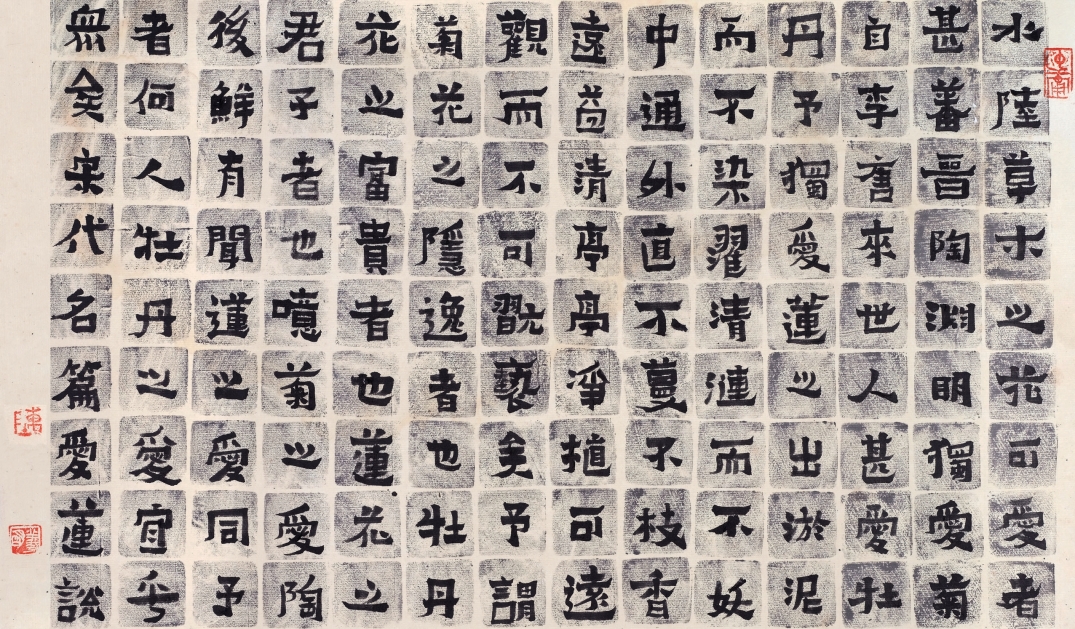 水陸草木之花可愛者
甚蕃晉陶淵明獨愛菊
自李唐來世人甚愛牡
丹予獨愛蓮之出淤泥
而不染濯清漣而不妖
中通外直不蔓不枝香
遠益清亭亭淨植可遠
觀而不可翫褻矣予謂
菊花之隱逸者也牡丹
花之富貴者也蓮花之
君子者也噫菊之愛陶
後鮮有聞蓮之愛同予
者何人牡丹之愛宜乎
眾矣宋代名篇愛蓮說